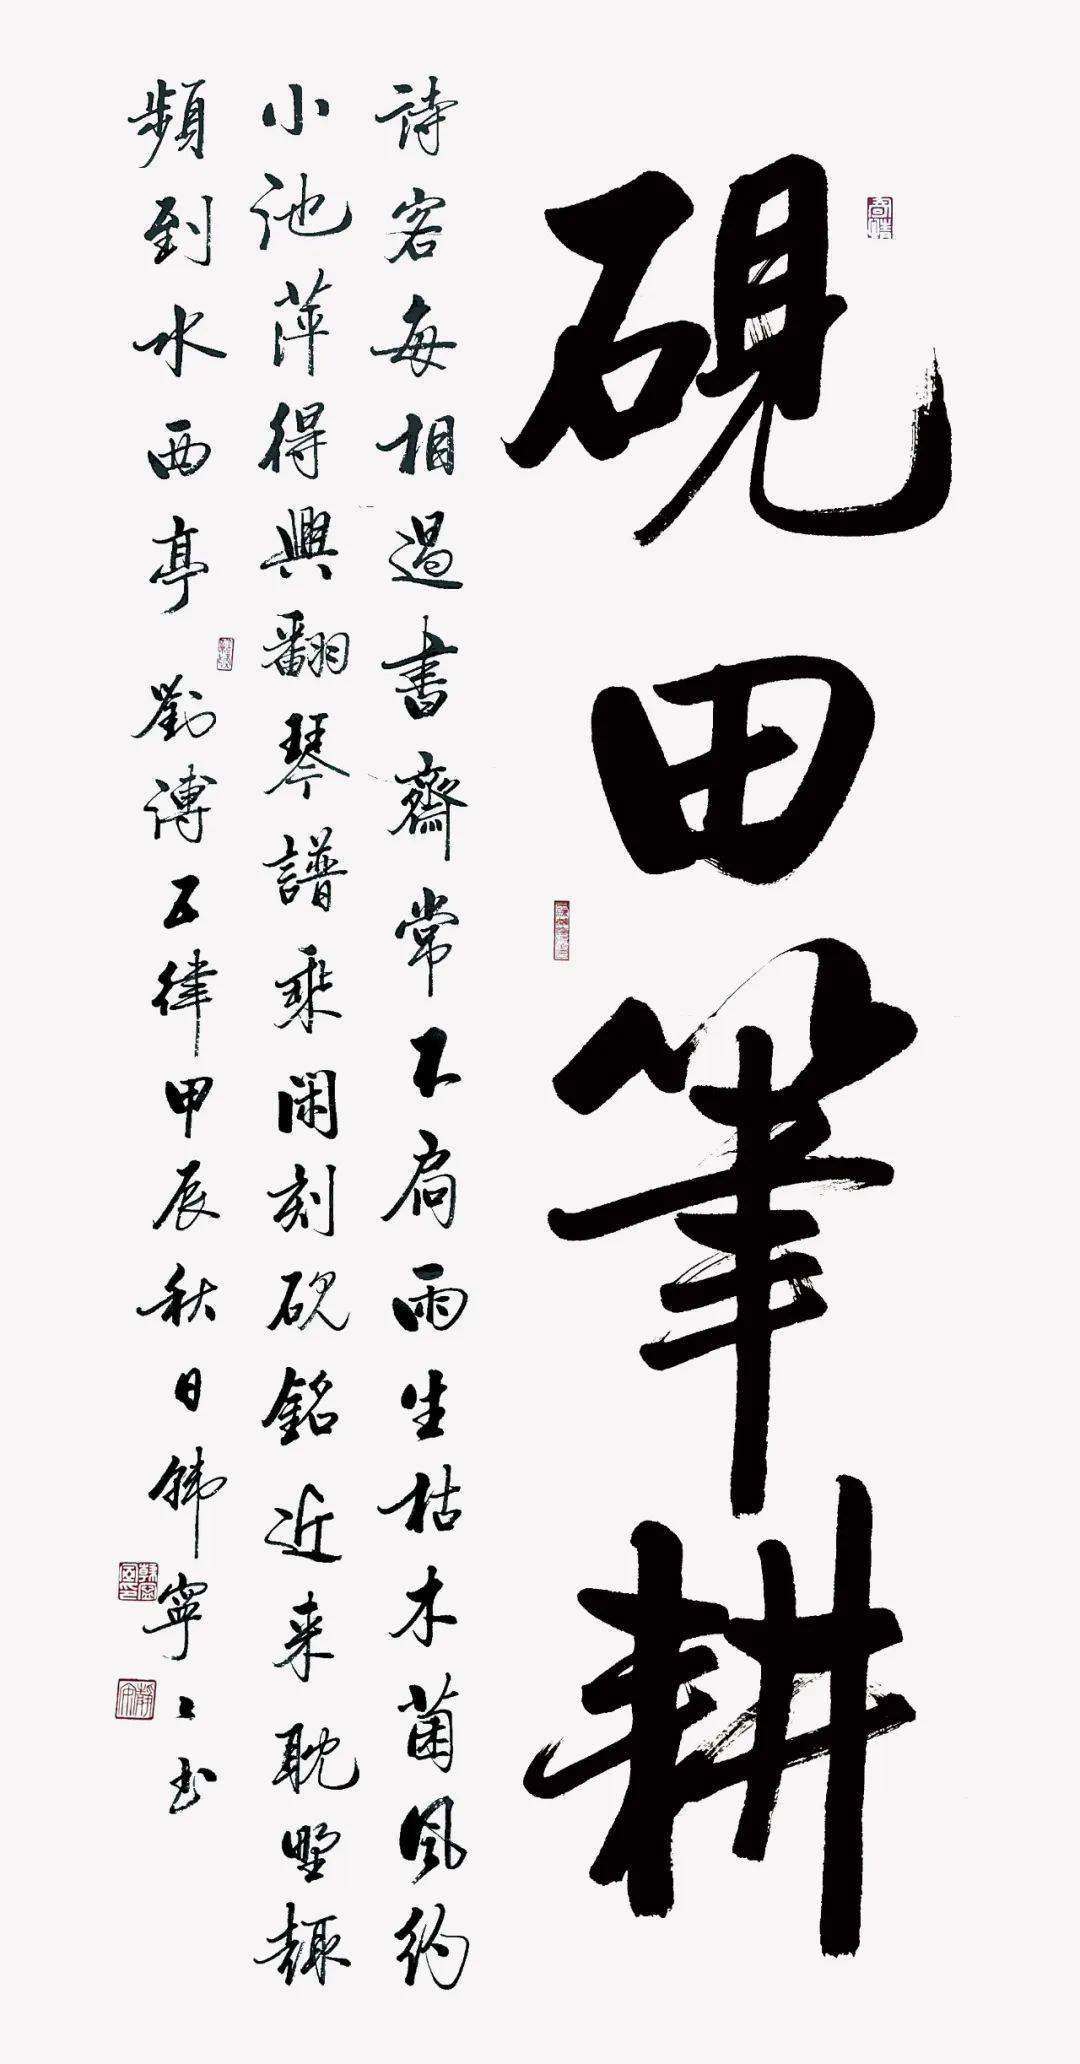 硯田筆耕
詩客每相過書齋常不扃雨生枯木菌風約
小池萍得興翻琴譜乘閑刻硯銘近来耽墅趣
頻到水西亭 劉溥五律甲辰秋日韩寧寧书